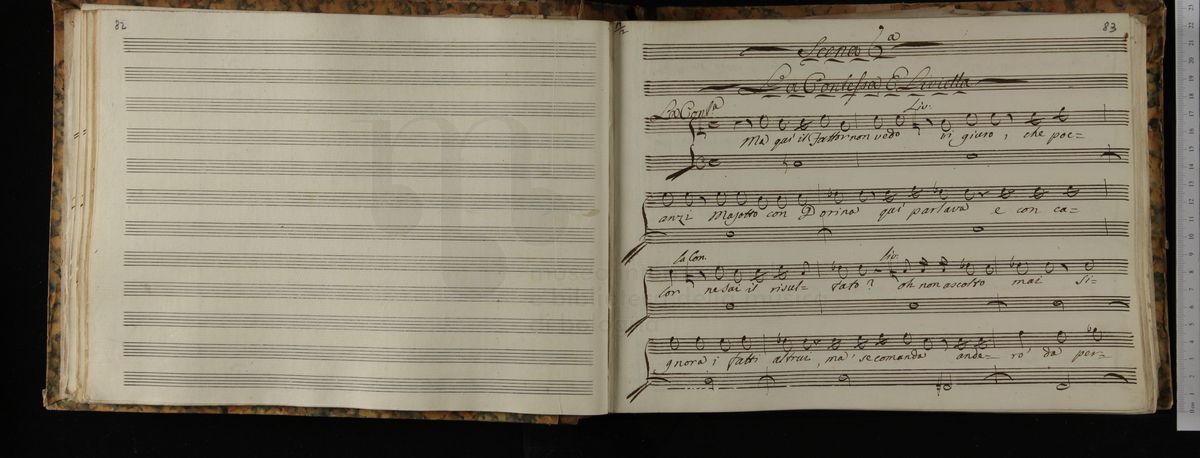 82
83
Scena 7.a
La Contessa E Livietta
La Con.sa
Liv.
Ma qui il fattor non vedo vi giuro, che poc=
anzi Masotto con Dorina qui parlava e con ca=
La Con.
Liv.
lor ne sai il risul= tato? oh non ascolto mai Si=
gnora i fatti altrui, ma se comanda ande= rò da per=